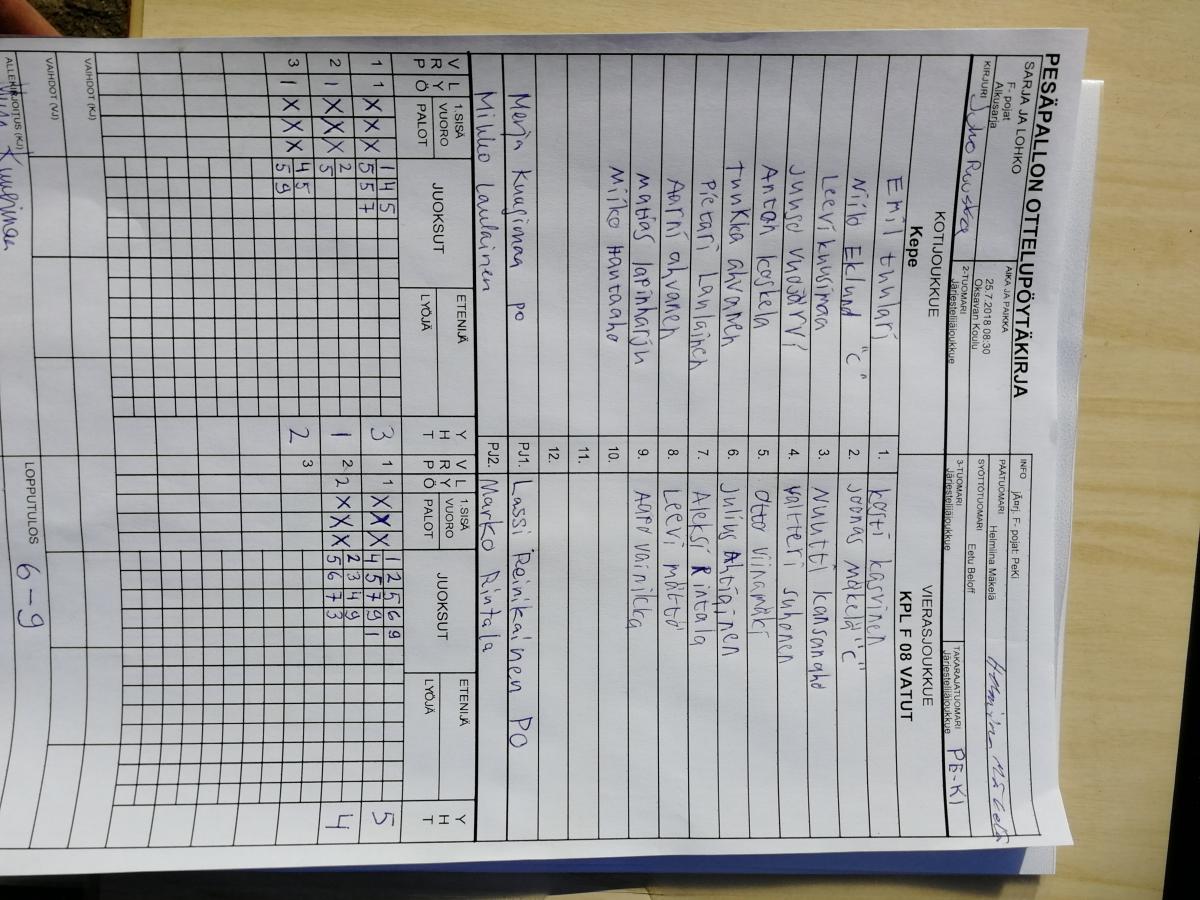 PESÄPALLON OTTELUPÖYTÄKIRJA
SARJA JA LOHKO
F- pojat
Aikusarja
AIKA JA PAIKKA
25.7.2018 08:30
Oksavan Koulu
INFO jÃ¤rj. F- pojat: PeKi
PÄÄTUOMARI Helmiina Mäkelä
SYÖTTÖTUOMARI Eetu Beloff
KIRJURI Juho Ruuska
2-TUOMARI
Järjestelijäjoukkue
3-TUOMARI
Järjestelijäjoukkue
TAKARAJATUOMARI
Järjestelijäjoukkue PE-KI
KOTIJOUKKUE VIERASJOUKKUE
Kepe KPL F 08 VATUT
Emil Tuulari 1. kosti karvinen
Niilo Eklund "C" 2. Joonas mäkelä "C"
Leevi kuusimaa 3. Nuutti kansanaho
Juuso vuojärvi 4. valtteri suhonen
Anton koskela 5. Otto viinamäki
Tuukka ahvanen 6. Julius Ahtiainen
Pietari Laulainen 7. Aleksi Rintala
Aarni ahvanen 8. Leevi mättö
matias lapinharju 9. Aapo vainikka
Miiko Hautaaho 10.
11.
12.
Merja Kuusimaa po PJ1. Lassi Reinikainen PO
Mikko Laulainen PJ2. Marko Rintala
V R P LYÖ 1.SISÄ VUORO PALOT JUOKSUT ETENIJÄ LYÖJÄ YHT V R P LYÖ 1.SISÄ VUORO PALOT JUOKSUT ETENIJÄ LYÖJÄ YHT
1 1 X X X 1 4 5 3 1 1 X X X 1 2 5 6 9 5
5 5 7 4 5 7 9 1
2 1 X X X 2 1 2 2 X X X 2 3 4 9 4
5 5 6 7 3
3 1 X X X 4 5 2 3
5 9
VAIHDOT (KJ)
VAIHDOT (VJ)
ALLEKIRJOITUS (KJ) LOPPUTULOS 6-9